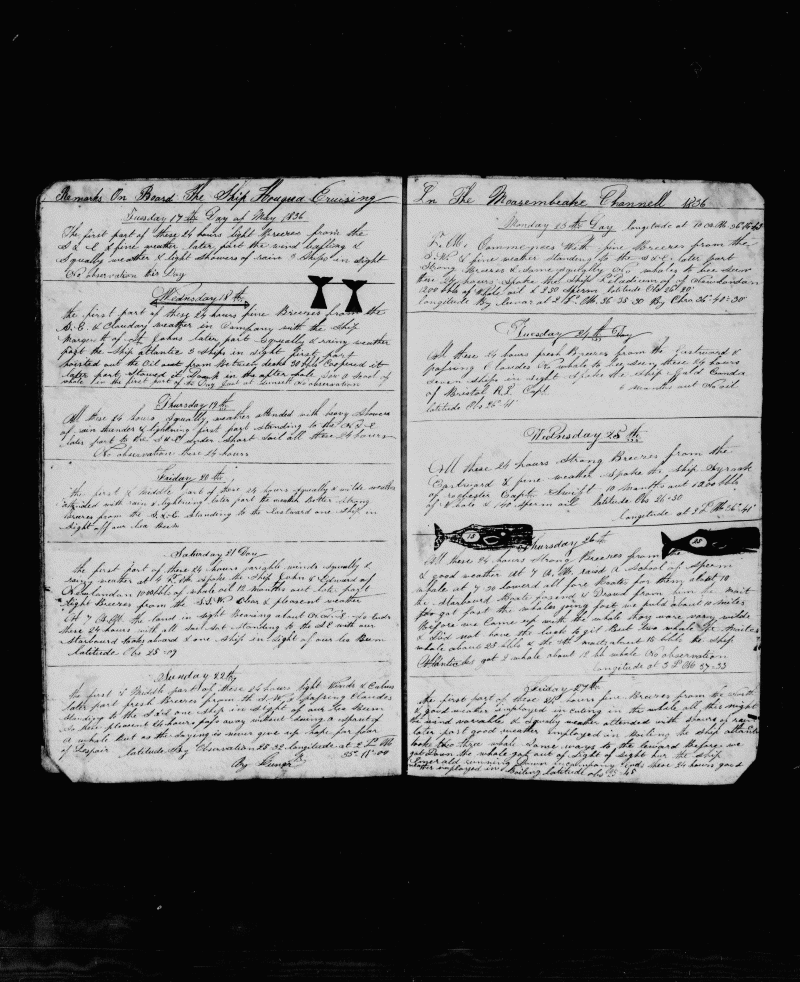 Remarks On Board The Ship Houqua Cruising
Tuesday 17th Day of May 1836
The first part of these 24 hours light Breezes from the
S & E & fine weather later part the wind baffling &
Squally weather & light showers of rain 3 Ships in sight
No observation this Day
Wednesday 18th
the first part of these 24 hours fine Breezes from the
N. E. & Cloudy weather in Company with the ship
of st Johns later part Squally & rainy weather
past the Ship atlantic 3 Ships in sight first part
the Oil out from Between decks 30 bbls Coopered it
later part stowed it Down in the after hole
whale in the first part of the Day at Sunsett No observation
Thursday 19th
All these 24 hours Squally weather attended with heavy Showers
of rain thunder & lightning first part standing to the N. & E
later part to the S & E under short sail all these 24 hours
No observation these 24 hours
Friday 20th
the first & middle part of these 24 hours squally & wilde weather
attended with rain & lightning later part the weather Better strong
Breezes from the S. & E Standing to the Eastward one ship in
Sight off our lea Beem
Saturday 21 Day
the first part of these 24 hours variable winds squally &
rainy weather at 4 P. M. spoke the Ship John & Edward of
Newlandain 1000 bbls of whale oil 12 months out late part
light Breezes from the S.S.W. Clear & pleasent weather
at 7 A. M. the land in sight bearing about So Ends
these 24 hours with all sail set standing to the S. E with our
Starbourd tacks aboard & one ship in Sight of our lea Beem
Latitude Obs 25-09
Sunday 22th
the first & Middle part of these 24 hours light Winds & Calms
later part fresh Breezes from the & passing Clouds
Standing to the Sod one Ship in sight of our Lea Beem
So these pleasent 24 hours pass away without seeing a spout of
a whale But as the saying is never give up hope for fear
of Despair latitude By Observation 25 32 longitude at 2 P. M
35° 11'-00
By Lunar
In The Mosembeake Channell 1836
Monday 23th Day longitude at
P. M. Commences With fine Breezes from the
S. W. & fine weather Standing to the S & E later part
Strong Breezes & some squally No whales to bee seen
these 24 hours Spoke the Ship Paladium of Newlondon
200 bbls of whale oil & 250 Sperm latitude Obs 26° 20'
longitude By lunar at 2 P. M. 36 35 30 By Chro 36° 40'-30"
Tuesday 24th Day
All these 24 hours fresh Breezes from the Eastward &
passing Cloudes No whale to bee seen these 24 hours
seven ships in sight Spoke the Ship Gold
of Bristol R. I. Capt 6 Months out No oil
latitude Obs 26° 41'
Wednesday 25th
All these 24 hours Strong Breezes from the
Eastward & fine weather Spoke the Ship
of rochester Capt Swift 10 Months out 1200 bbls
of whale & 140 sperm oil latitude Obs 26°-50
longitude at 2 P. M. 36° 41'
15
Thursday 26th
35
All these 24 hours Strong Breezes from the
& good weather At 7 A. M. raisd a School of Sperm
whale at 7 30 lowered all fore Boates for them
the Starbourd Boate fasend & Drawd from him he wait
too got fast the whales going fast we puld about 10 miles
Before we Came up with the whale thay ware varry wilde
& did not have the luck to git But two whale
whale about 25 bbls & the 4th mate about 15 bbls the ship
Atlantick got 1 whale about 12 bb whale No observation
longitude at 3 P. M 37-33
Friday 27th
the first part of these 24 hours fine Breezes from the
& good weather employed in cuting in the whale all this night
the wind variable & squaly weather attended with spours of rain
later part good weather employed in boiling the ship atlantic
took too three whale Some ways to the leward thefore we
got Down the whale got out of Sight of Sight her the ship
Emerald running Down in company Ends these 24 hours good
weather employed in Boiling latitude obs 45